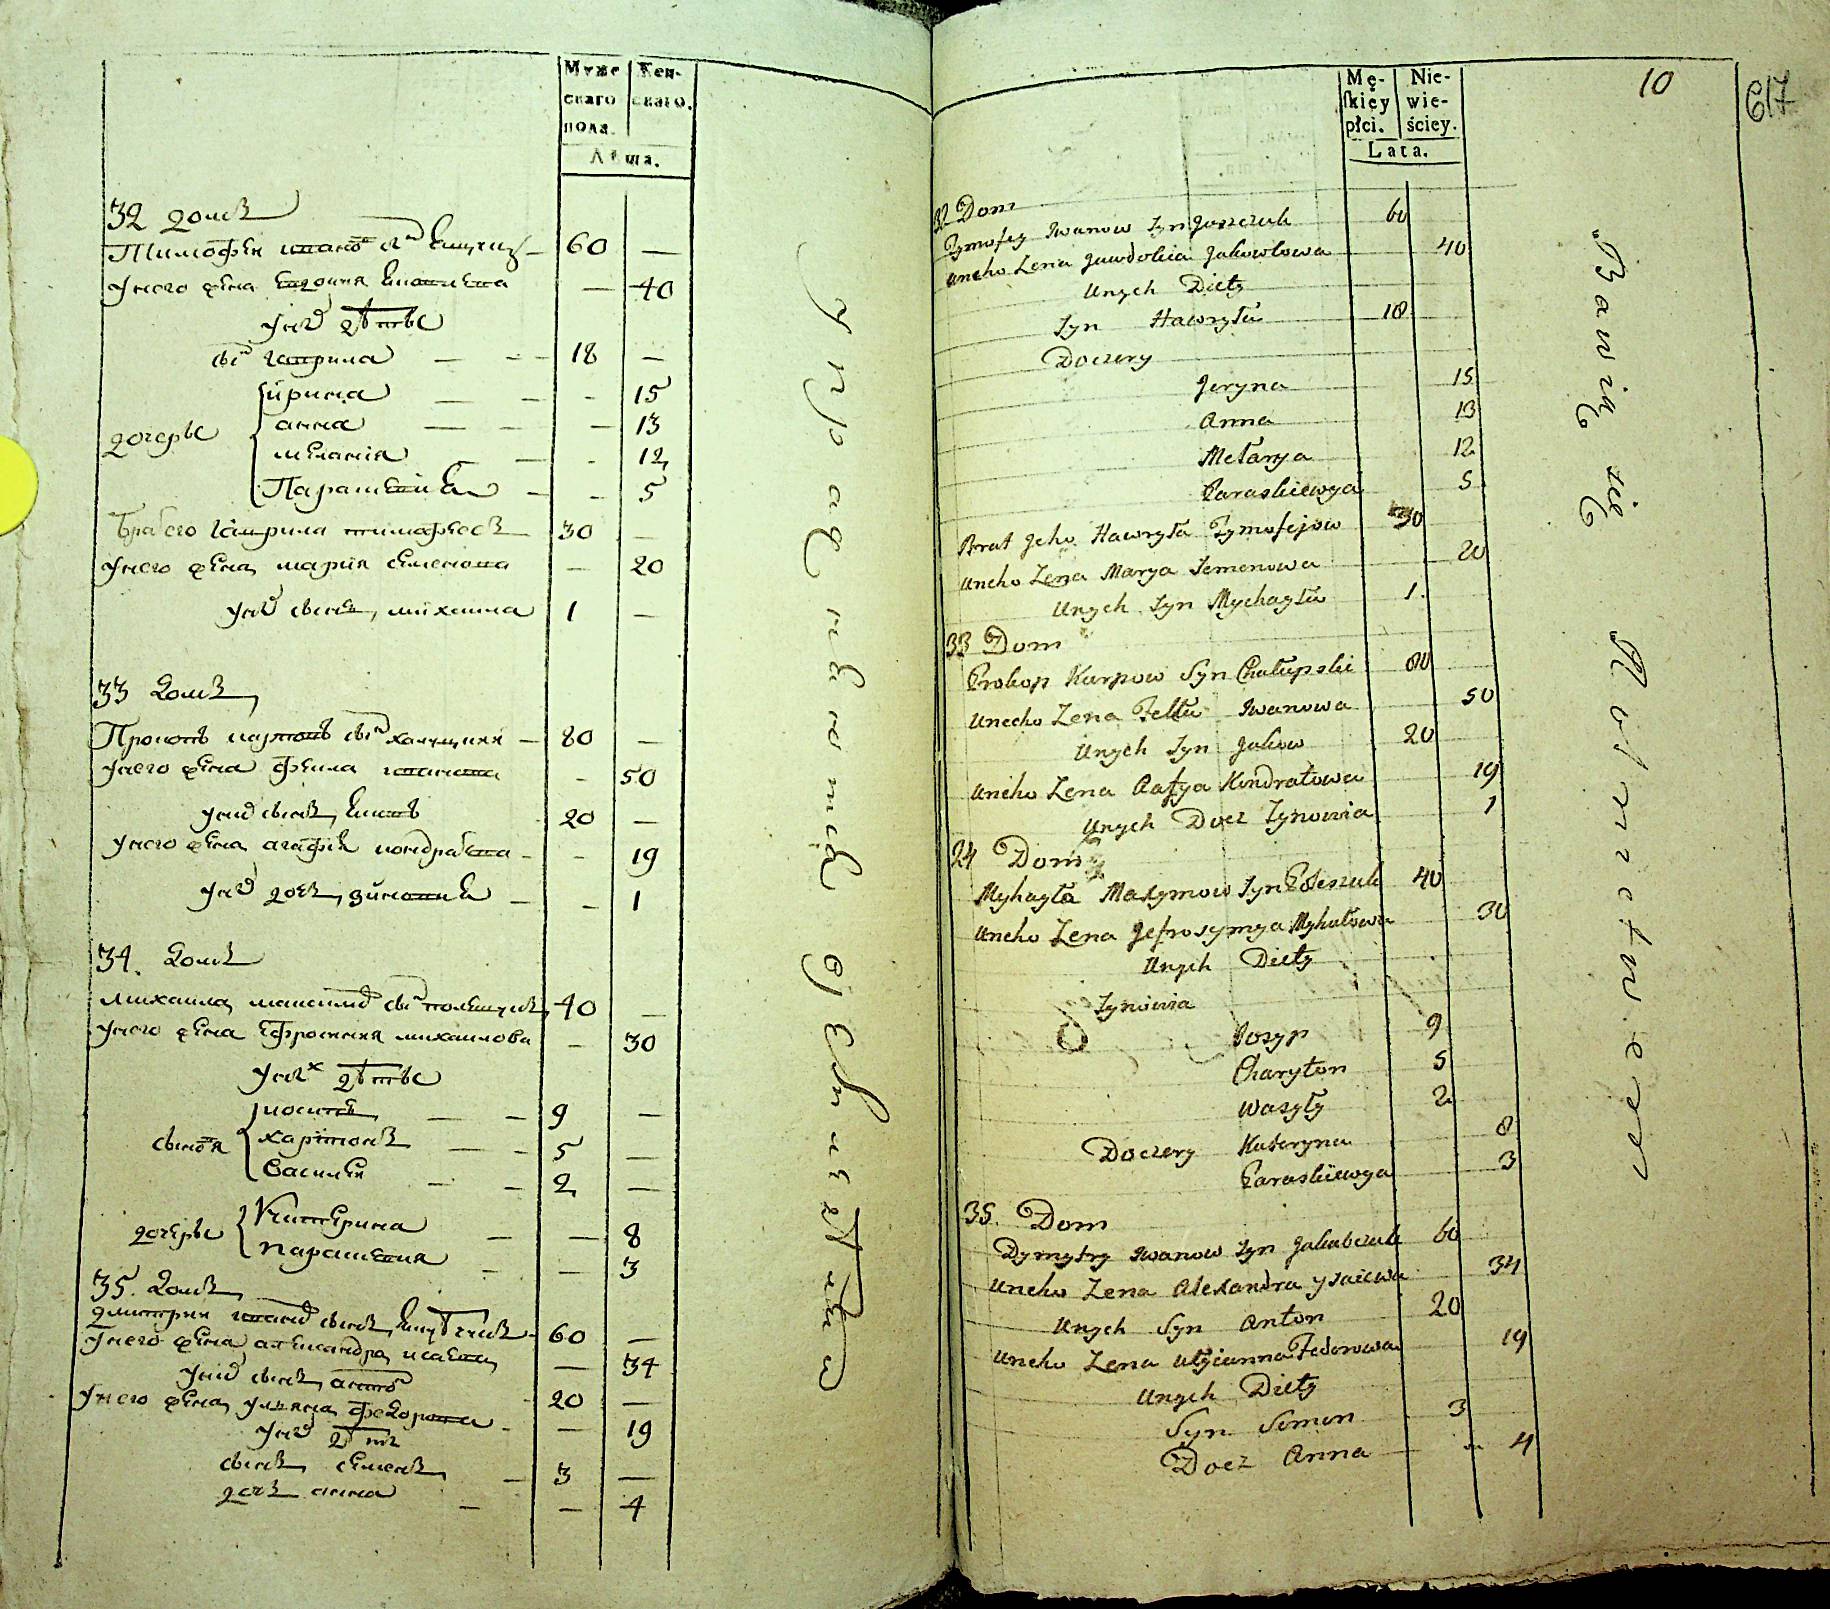 Муже
скаго
пола.
Жен-
скаго.
Лѣта.
32 домъ
Тимофей ивановъ сынъ
60 —
у него жена Евдокия
— 40
у них дѣти
сынъ гаврила — — 18 —
дочеры
ирина — — — 15
анна — — — 13
меланія — — — 12
Параскевия — — 5
братъ его гаврила тимофеевъ 30 —
у него жена мария семенова — 20
у них сынъ михаила 1 —
33 домъ
Прокопъ карповъ сынъ 80 —
у него жена фекла иванова — 50
у них сынъ 20 —
у него жена агафия кондратова — 19
у них дочъ зиновия — 1
34. домъ
михаила максимовъ сынъ полещукъ 40 —
у него жена Ефросиния михаилова — 30
у них дѣти
сыновя
иосипъ — — 9 —
харитонъ — — 5 —
Василей — — 2 —
дочеры
Катерина — — 8
параскевия — — 3
35. домъ
дмитрий ивановъ сынъ 60 —
у него жена александра исаева — 34
у них сынъ антонъ 20 —
у него жена ульяна федорова — 19
у них дѣти
сынъ семенъ — 3 —
дочъ анна — — 4
Mę-
skiey
płci.
Nie-
wie-
ściey.
Lata.
10
617
32 Dom
Tymofey Iwanow Syn Juszczuk 60
uneho Zena Jawdokia Jakowlowa 40
Unych Diety
Syn Hawryła 18
Doczery
Jeryna 15
Anna 13
Mełanya 12
Paraskiewya 5
Brat Jeho Hawryła Tymofejow 30
uneho Zena Marya Semenowa 20
Unych Syn Mychayła 1.
33 Dom
Prokop Karpow Syn Chałupski 80
Uneho Zena Fekła Iwanowa 50
Unych Syn Jakow 20
Uneho Zena Aafya Kondratowa 19
Unych Docz Zynowia 1
24 Dom
Myhayła Maxymow Syn Poleszuk 40
Uneho Zena Jefrosymya Myhałowa 30
Unych Diety
Synowia
Iosyp 9
Charyton 5
Wasyly 2
Doczery Kateryna 8
Paraskiewya 3
35. Dom
Dymytry Iwanow Syn Jakubczuk 60
Uneho Zena Alexandra ysaiewa 34
Unych Syn Anton 20
Uneho Zena Ulyianna Fedorowa 19
Unych Diety
Syn Semen 3
Docz Anna 4
Bawią się Rolnictwem